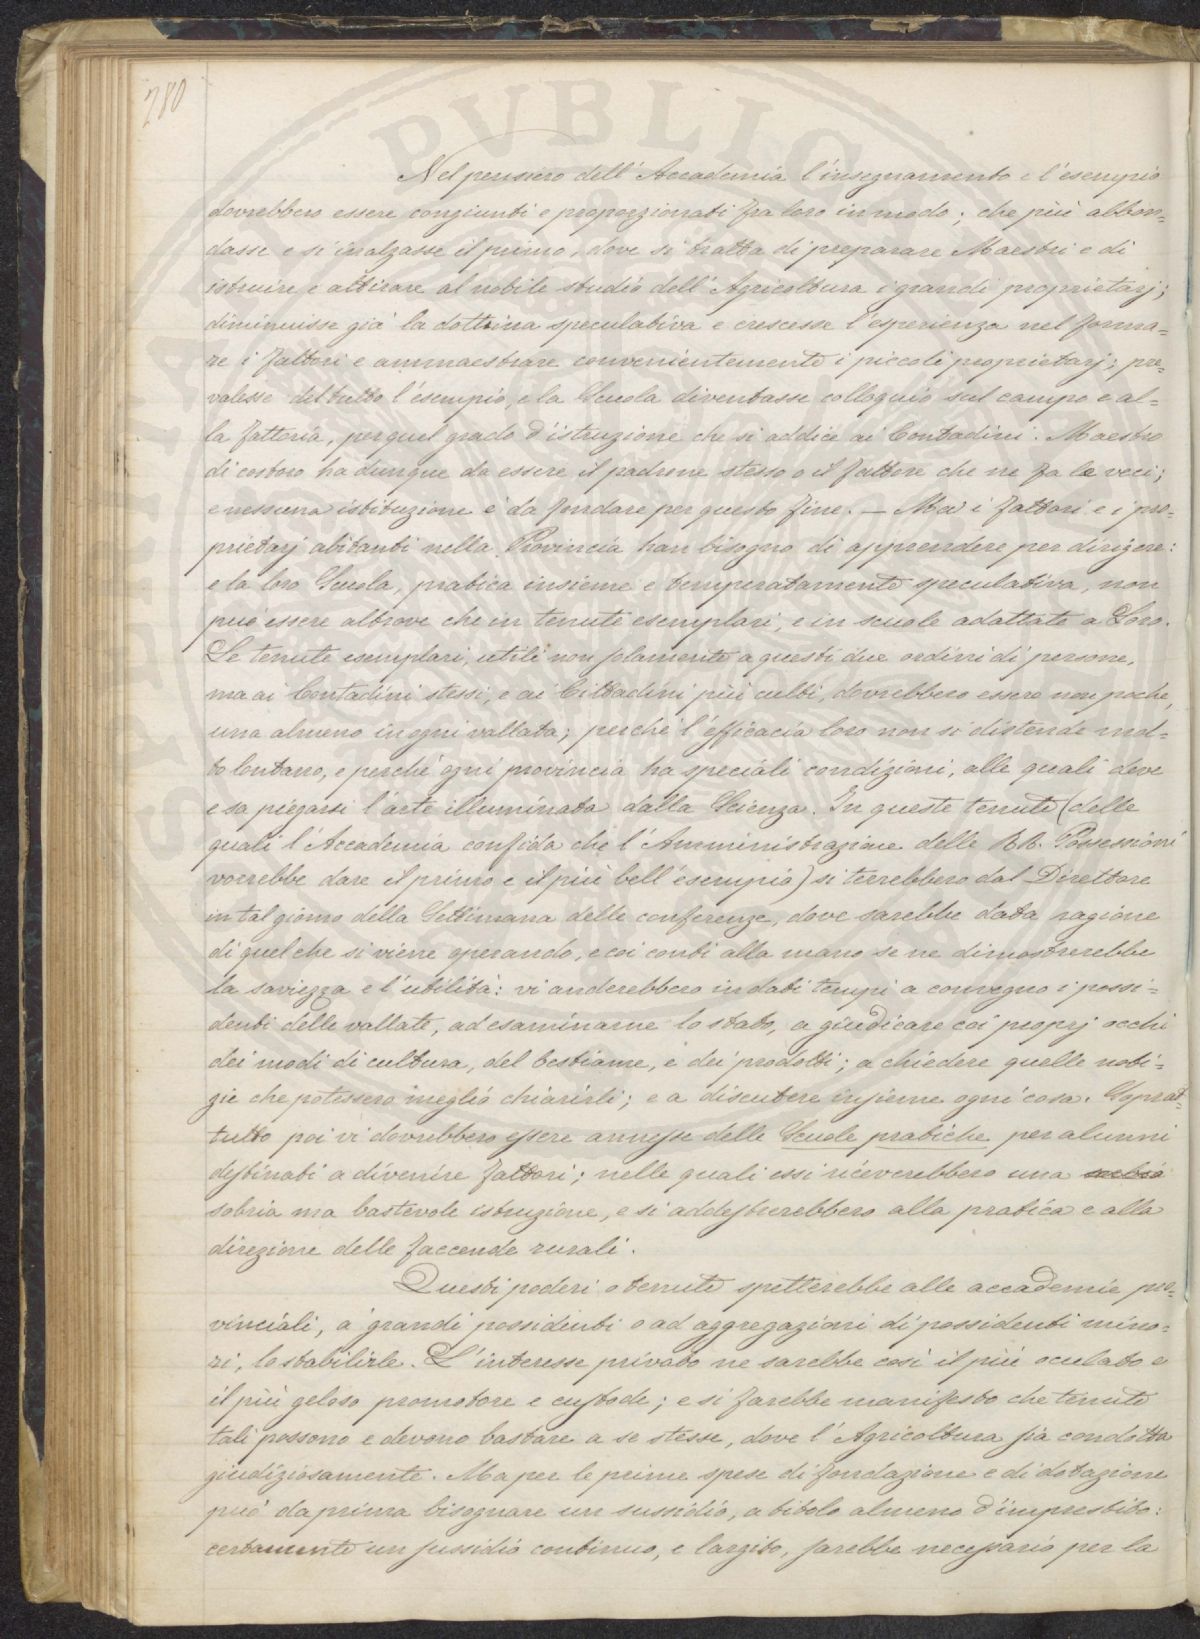 280
Nel pensiero dell'Accademia l'insegnamento e l'esempio
dovrebbero essere congiunti e proporzionati fra loro in modo; che più abbon=
dasse e si inalzasse il primo, dove si tratta di preparare Maestri e di
istruire e attirare al nobile studio dell'Agricoltura i grandi proprietarj;
diminuisse già la dottrina speculativa e crescesse l'esperienza nel forma=
re i fattori e ammaestrare convenientemente i piccoli proprietarj; pre=
valesse del tutto l'esempio, e la Scuola diventasse colloquio sul campo e al=
la fattoria, per quel grado d'istruzione che si addice ai Contadini. Maestro
di costoro ha dunque da essere il padrone stesso o il fattore che ne fa le veci;
e nessuna istituzione è da fondare per questo fine. — Ma i fattori e i pro=
prietarj abitanti nella Provincia han bisogno di apprendere per dirigere:
e la loro Scuola, pratica insieme e temperatamente speculativa, non
può essere altrove che in tenute esemplari, e in scuole adattate a Loro.
Le tenute esemplari, utili non solamente a questi due ordini di persone,
ma ai Contadini stessi, e ai Cittadini più culti, dovrebbero essere non poche,
una almeno in ogni vallata; perchè l'efficacia loro non si distende mol=
to lontano, e perchè ogni provincia ha speciali condizioni, alle quali deve
e sa piegarsi l'arte illuminata dalla Scienza. In queste tenute (delle
quali l'Accademia confida che l'Amministrazione delle RR. Possessioni
vorrebbe dare il primo e il più bell'esempio) si terrebbero dal Direttore
in tal giorno della Settimana delle conferenze, dove sarebbe data ragione
di quel che si viene operando, e coi conti alla mano se ne dimostrerebbe
la saviezza e l'utilità: vi anderebbero in dati tempi a convegno i possi=
denti delle vallate, ad esaminarne lo stato, a giudicare coi proprj occhi
dei modi di cultura, del bestiame, e dei prodotti; a chiedere quelle noti=
zie che potessero meglio chiarirli; e a discutere insieme ogni cosa. Soprat=
tutto poi vi dovrebbero essere annesse delle Scuole pratiche per alunni
destinati a divenire fattori; nelle quali essi riceverebbero una
sobria ma bastevole istruzione, e si addestrerebbero alla pratica e alla
direzione delle faccende rurali.
Questi poderi o tenute spetterebbe alle accademie pro=
vinciali, a grandi possidenti o ad aggregazioni di possidenti mino=
ri, lo stabilirle. L'interesse privato ne sarebbe così il più oculato e
il più geloso promotore e custode; e si farebbe manifesto che tenute
tali possono e devono bastare a se stesse, dove l'Agricoltura sia condotta
giudiziosamente. Ma per le prime spese di fondazione e di dotazione
può da prima bisognare un sussidio, a titolo almeno d'imprestito:
certamente un sussidio continuo, e largito, sarebbe necessario per la